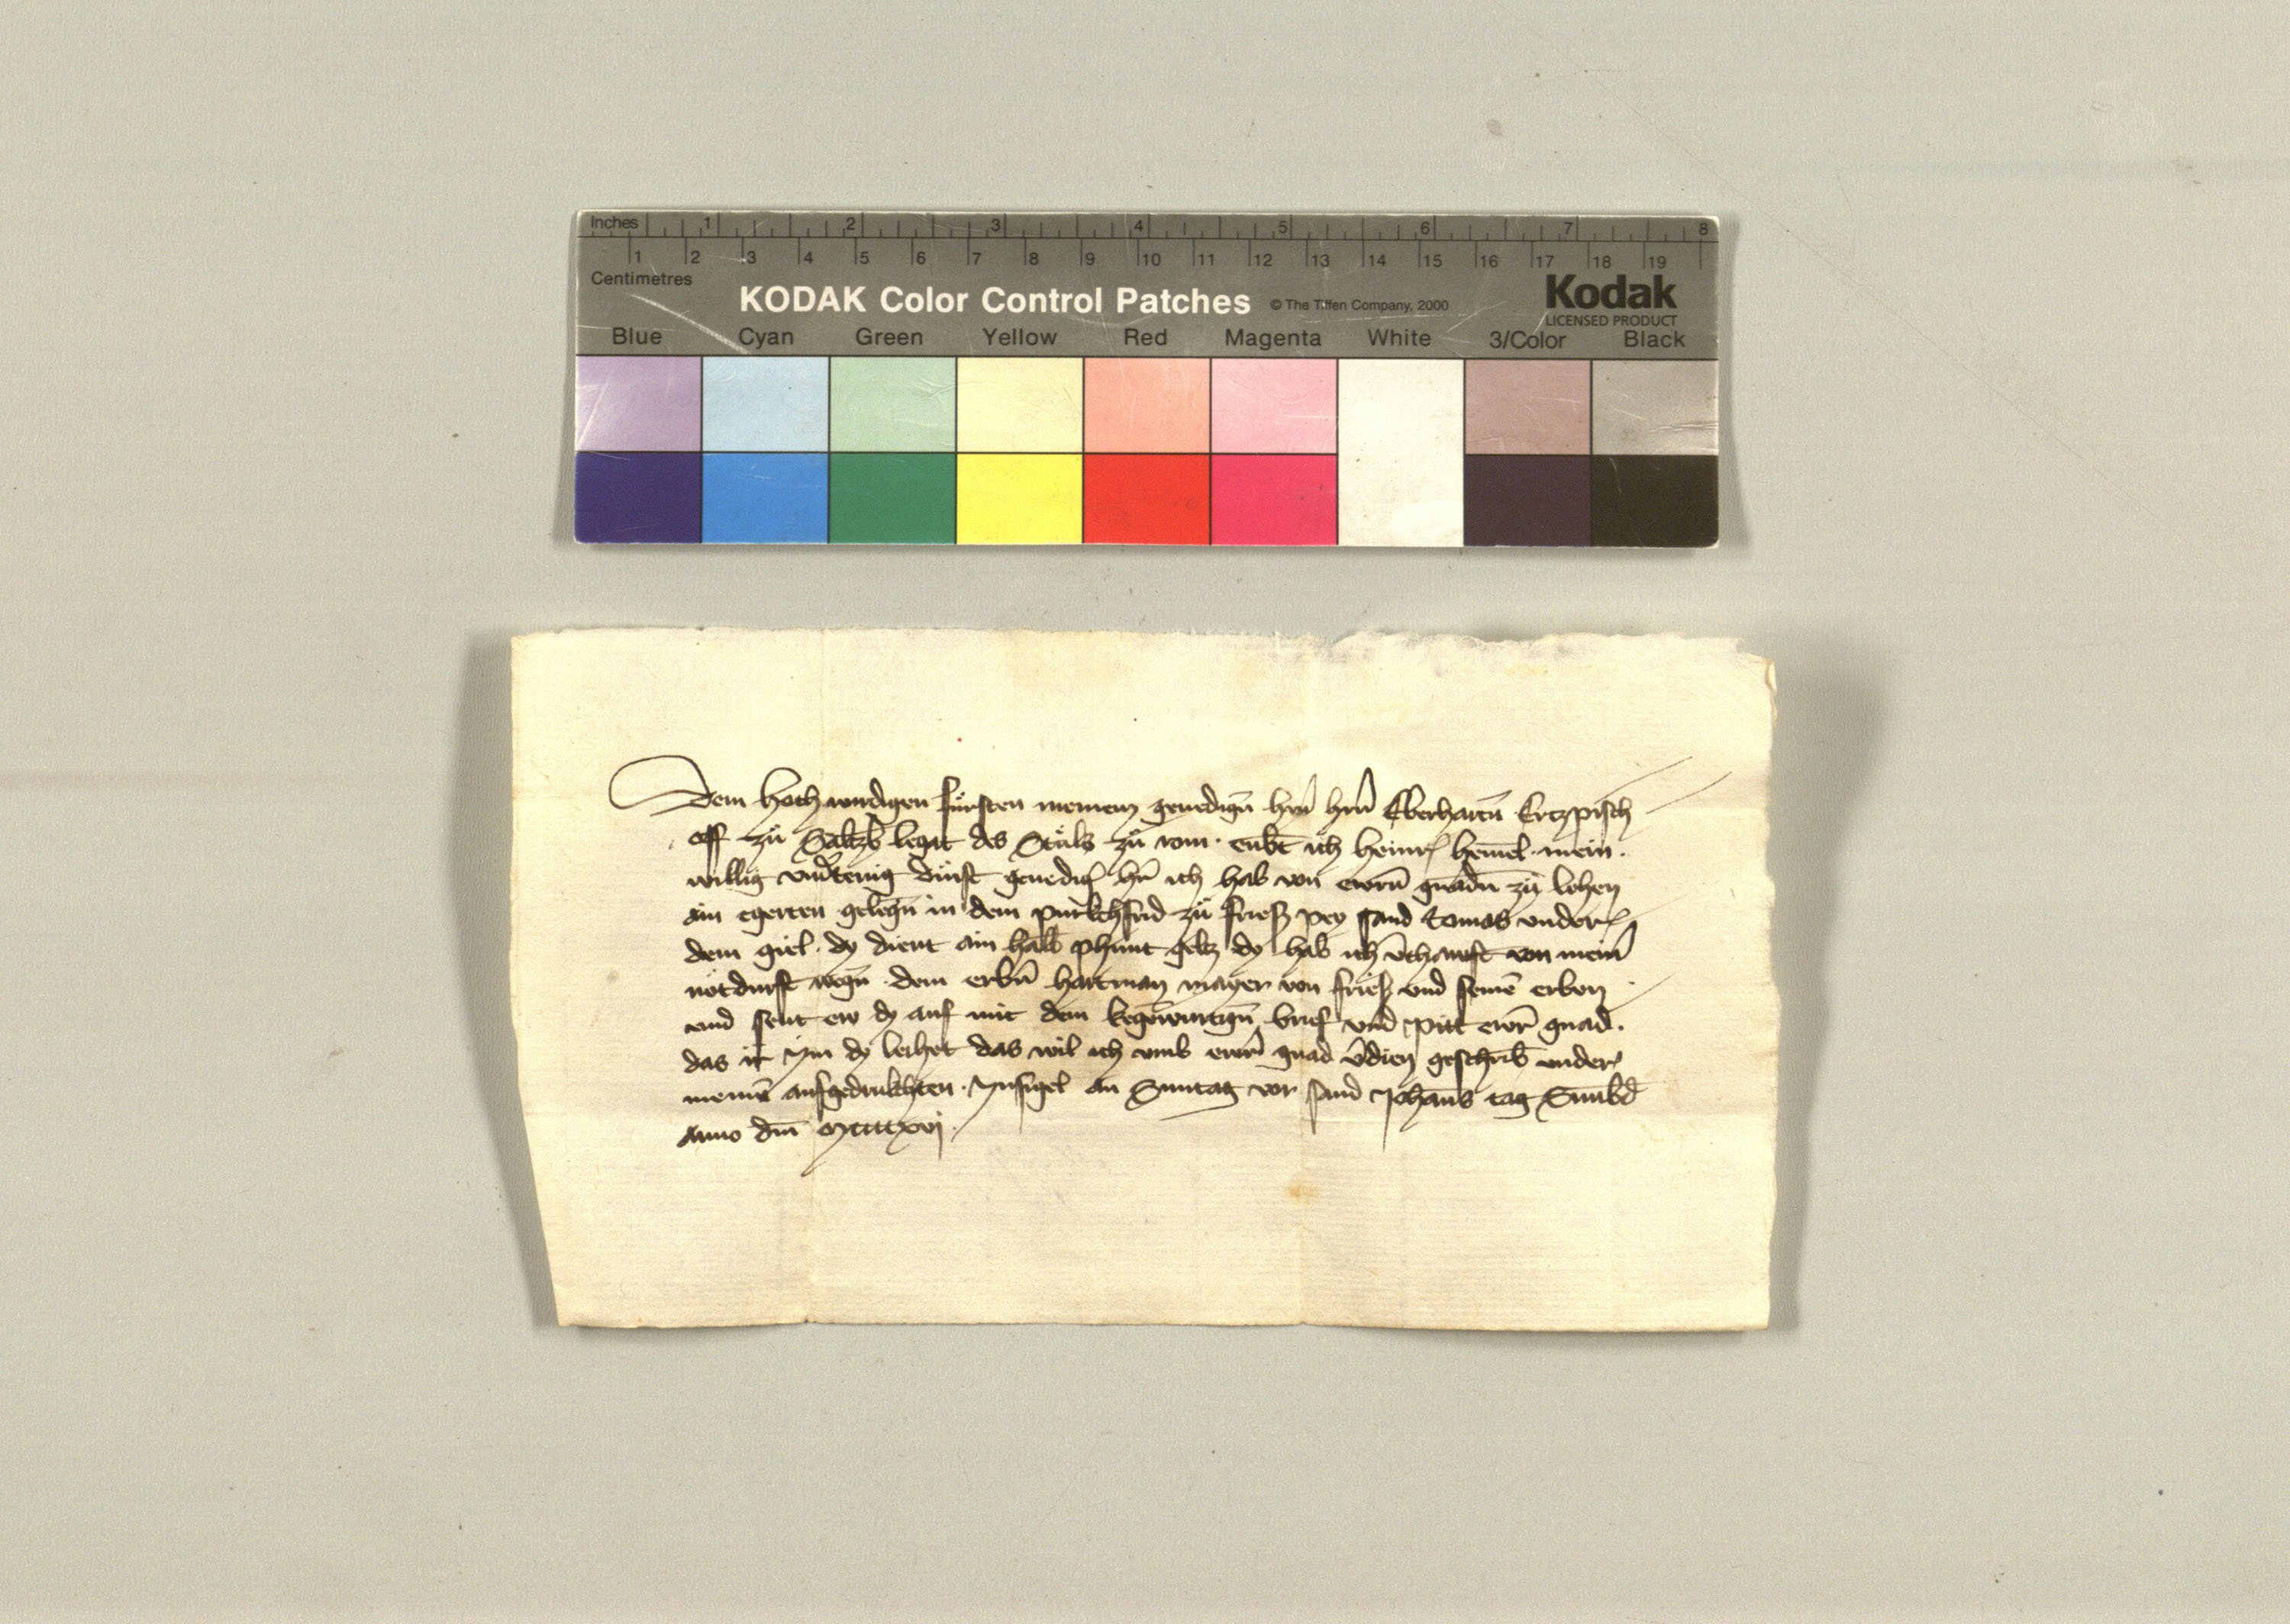 Inches 1 2 3 4 5 6 7 8
1 2 3 4 5 6 7 8 9 10 11 12 13 14 15 16 17 18 19
Centimetres
KODAK Color Control Patches © The Tiffen Company, 2000 Kodak
LICENSED PRODUCT
Blue Cyan Green Yellow Red Magenta White 3/Color Black
Dem hochwirdigen fürsten meinem genedign̄ hrn̄ hrn̄ Eberhartn̄ Ertzpisch
off zů Saltzb̄ legat des Stůls zů rom · enbt̄ ich heinr̄ hem̄el · mein ·
willig und̄tenig dinst genediḡ hr̄ ich hab von ewrn̄ gnadn̄ zů lehen
ain egerten gelegn̄ in dem purkchfrid zů friesz pey sand tomas under
dem giel · dy dient ain halb phunt geltz dy hab ich v̄chawft von mein̄
nötdurft wegn̄ · dem erbn̄ hartman mayer von friesz und seinē erben
und sent ew dy auf mit dem kegēwurtign̄ brief und pitt ewr̄ gnad ·
das ir ym dy leihet das wil ich umb ewr̄ gnad v̄dien geschrib̄ under
meinē aufgedrukchten · ynsigel an Suntag vor sand Johan̄s tag Sunbd̄
Anno dm̄ Mccccxvj ·